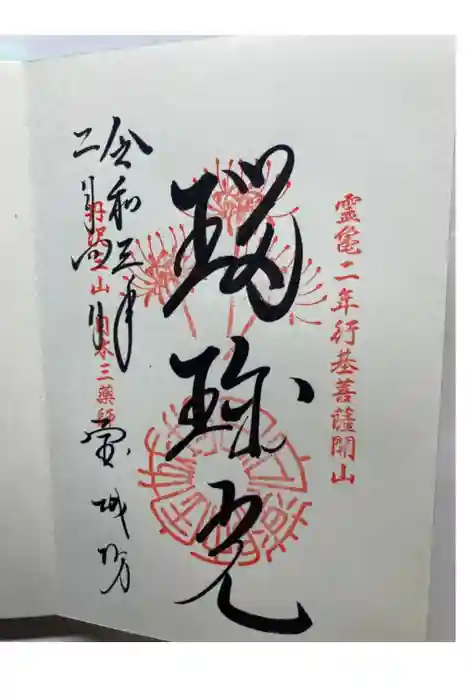 霊亀二年行基菩薩開山
瑠璃光
令和三年
二月四日
日本三薬師
宝城坊